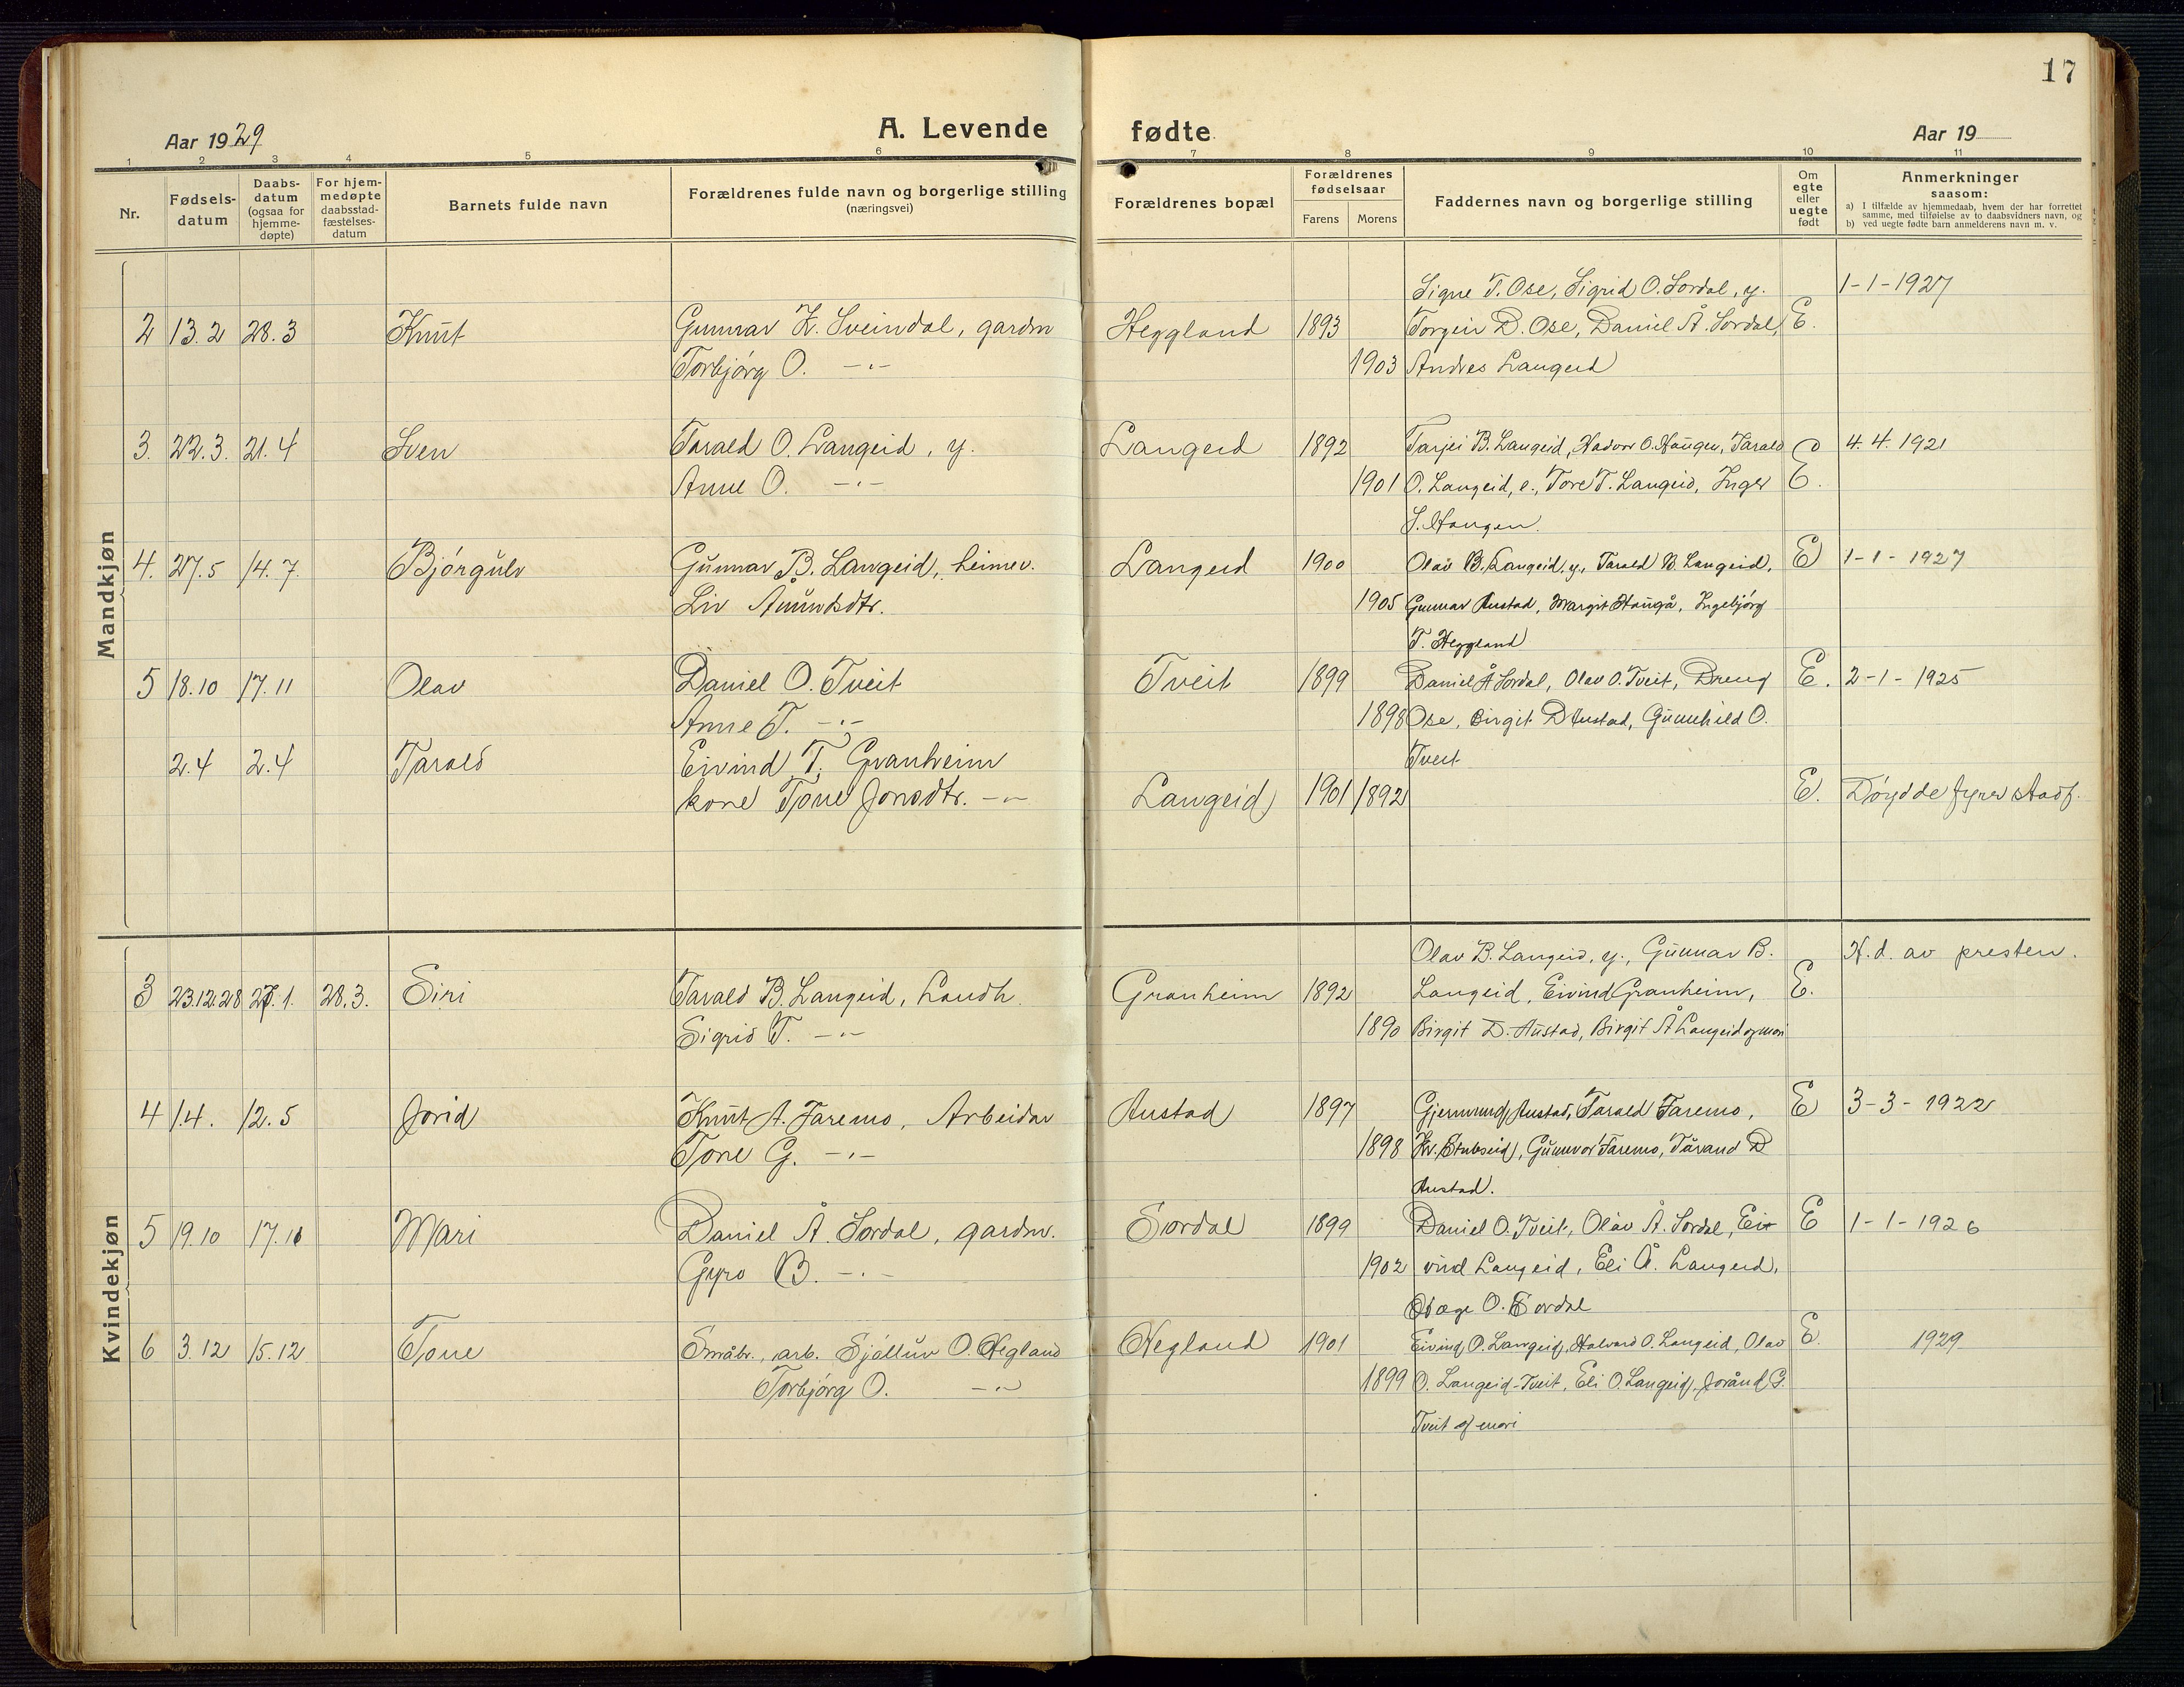 17
Aar 1929 A. Levende fødte Aar 19
1 2 3 4 5 6 7 8 9 10 11
Nr. Fødsels-datum Daabs-datum (ogsaa for hjemme-døpte) For hjem-medøpte daabsstad-fæstelses-datum Barnets fulde navn Forældrenes fulde navn og borgerlige stilling (næringsvei) Forældrenes bopæl Forældrenes fødselsaar Farens Morens Faddernes navn og borgerlige stilling Om egte eller uegte født Anmerkninger saasom:
a) I tilfælde av hjemmedaab, hvem der har forrettet samme, med tilføielse av to daabsvidners navn, og
b) ved uegte fødte barn anmelderens navn m. v.
Mandkjøn
Signe T. Ose, Sigrid O. Sordal, y. 1-1-1927
2 13.2 28.3 Knut Gunnar K. Sveindal, gardm Heggland 1893 Torgeir D. Ose, Daniel Å. Sordal, E.
Torbjørg O. -"- 1903 Andres Langeid
3. 22.3. 21.4 Sven Tarald O. Langeid, y. Langeid 1892 Tarjei B. Langeid, Hadvor O. Haugen, Tarald 4.4.1921
Anne O. -"- 1901 O. Langeid, e., Tore T. Langeid, Inger E.
S. Haugen.
4. 27.5 14.7. Bjørgulv Gunnar B. Langeid, heimev. Langeid 1900 Olav B. Langeid, y., Tarald B. Langeid, E 1-1-1927
Liv Åmundsdtr. 1905 Gunnar Austad, Margit Haugå, Ingebjørg
T. Heggland
5 18.10 17.11 Olav Daniel O. Tveit Tveit 1899 Daniel Å Sordal, Olav O. Tveit, Dreng E. 2-1-1925
Anne T. -"- 1898 Ose, Birgit D Austad, Gunnhild O.
Tveit
2.4 2.4 Tarald Eivind T. Granheim
kone Tone Jonsdtr. -"- Langeid 1901 1892 E. Døydde fyrer stadf.
Kvindekjøn
Olav B. Langeid, y., Gunnar B. H.d. av presten.
3 23.12.28 27.1. 28.3. Siri Tarald B. Langeid, Landh. Granheim 1892 Langeid, Eivind Granheim, E.
Sigrid T. -"- 1890 Birgit D. Austad, Birgit Å Langeid og mori
4 1.4. 12.5 Jorid Knut A. Faremo, Arbeidar Austad 1897 Gjermund Austad, Tarald Faremo, E 3-3-1922
Tone G. -"- 1898 Kr. Stubseid, Gunnvor Faremo, Tårand D
Austad.
5 19.10 17.11 Mari Daniel Å. Sordal, gardm. Sordal 1899 Daniel O. Tveit, Olav Å. Sordal, Ei- E 1-1-1926
Gyro B. -"- 1902 vind Langeid, Eli Å. Langeid,
O. Sordal
6 3.12 15.12 Tone Småbr., arb. Sjølluv O. Hegland Hegland 1901 Eivind O. Langeid, Halvard O. Langeid, Olav E. 1929
Torbjørg O. -"- 1899 O. Langeid-Tveit, Eli O. Langeid, Jorånd G.
Tveit og mori